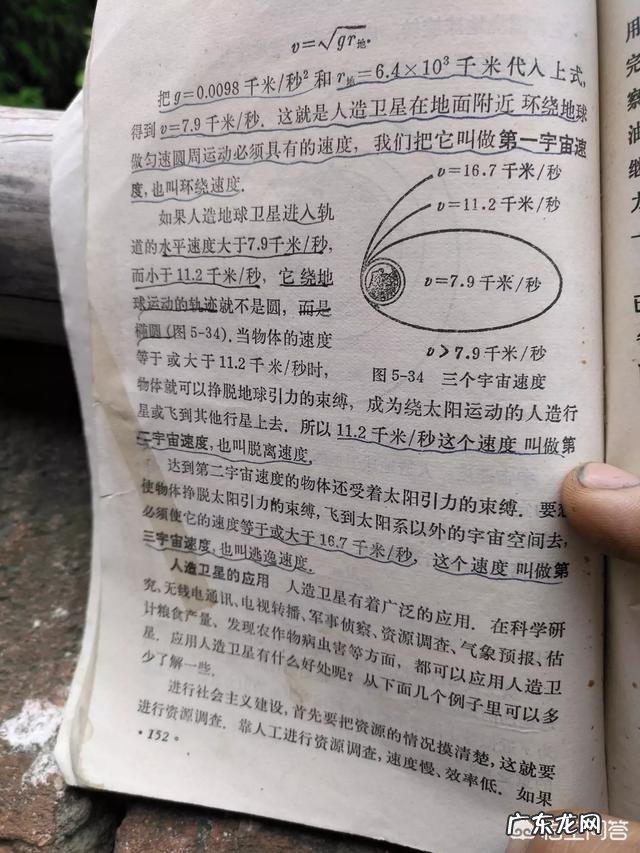 v=√gr地.
把 g=0.0098 千米/秒² 和 r地=6.4×10³ 千米 代入上式,
得到 v=7.9 千米/秒. 这就是人造卫星在地面附近 环绕地球
做匀速圆周运动必须具有的速度, 我们把它叫做 第一宇宙速
度, 也叫环绕速度.
如果人造地球卫星进入轨
道的水平速度大于7.9千米/秒,
而小于 11.2 千米/秒, 它 绕地
球运动的轨迹就不是圆, 而是
椭圆 (图 5-34). 当物体的速度
等于或大于 11.2 千米/秒时,
v=16.7 千米/秒
v=11.2 千米/秒
v=7.9 千米/秒
v>7.9 千米/秒
图 5-34 三个宇宙速度
物体就可以挣脱地球引力的束缚, 成为绕太阳运动的人造行
星或飞到其他行星上去. 所以 11.2 千米/秒这个速度 叫做第
二宇宙速度, 也叫脱离速度.
达到第二宇宙速度的物体还受着太阳引力的束缚. 要
使物体挣脱太阳引力的束缚, 飞到太阳系以外的宇宙空间去,
必须使它的速度等于或大于 16.7 千米/秒, 这个速度 叫做第
三宇宙速度, 也叫逃逸速度.
人造卫星的应用 人造卫星有着广泛的应用. 在科学研
究、无线电通讯、电视转播、军事侦察、资源调查、气象预报、估
计粮食产量、发现农作物病虫害等方面, 都可以应用人造卫
星. 应用人造卫星有什么好处呢? 从下面几个例子里可以多
少了解一些.
进行社会主义建设, 首先要把资源的情况摸清楚, 这就要
进行资源调查. 靠人工进行资源调查, 速度慢、效率低. 如果
·152·
用
完
察
油
继
广东龙网